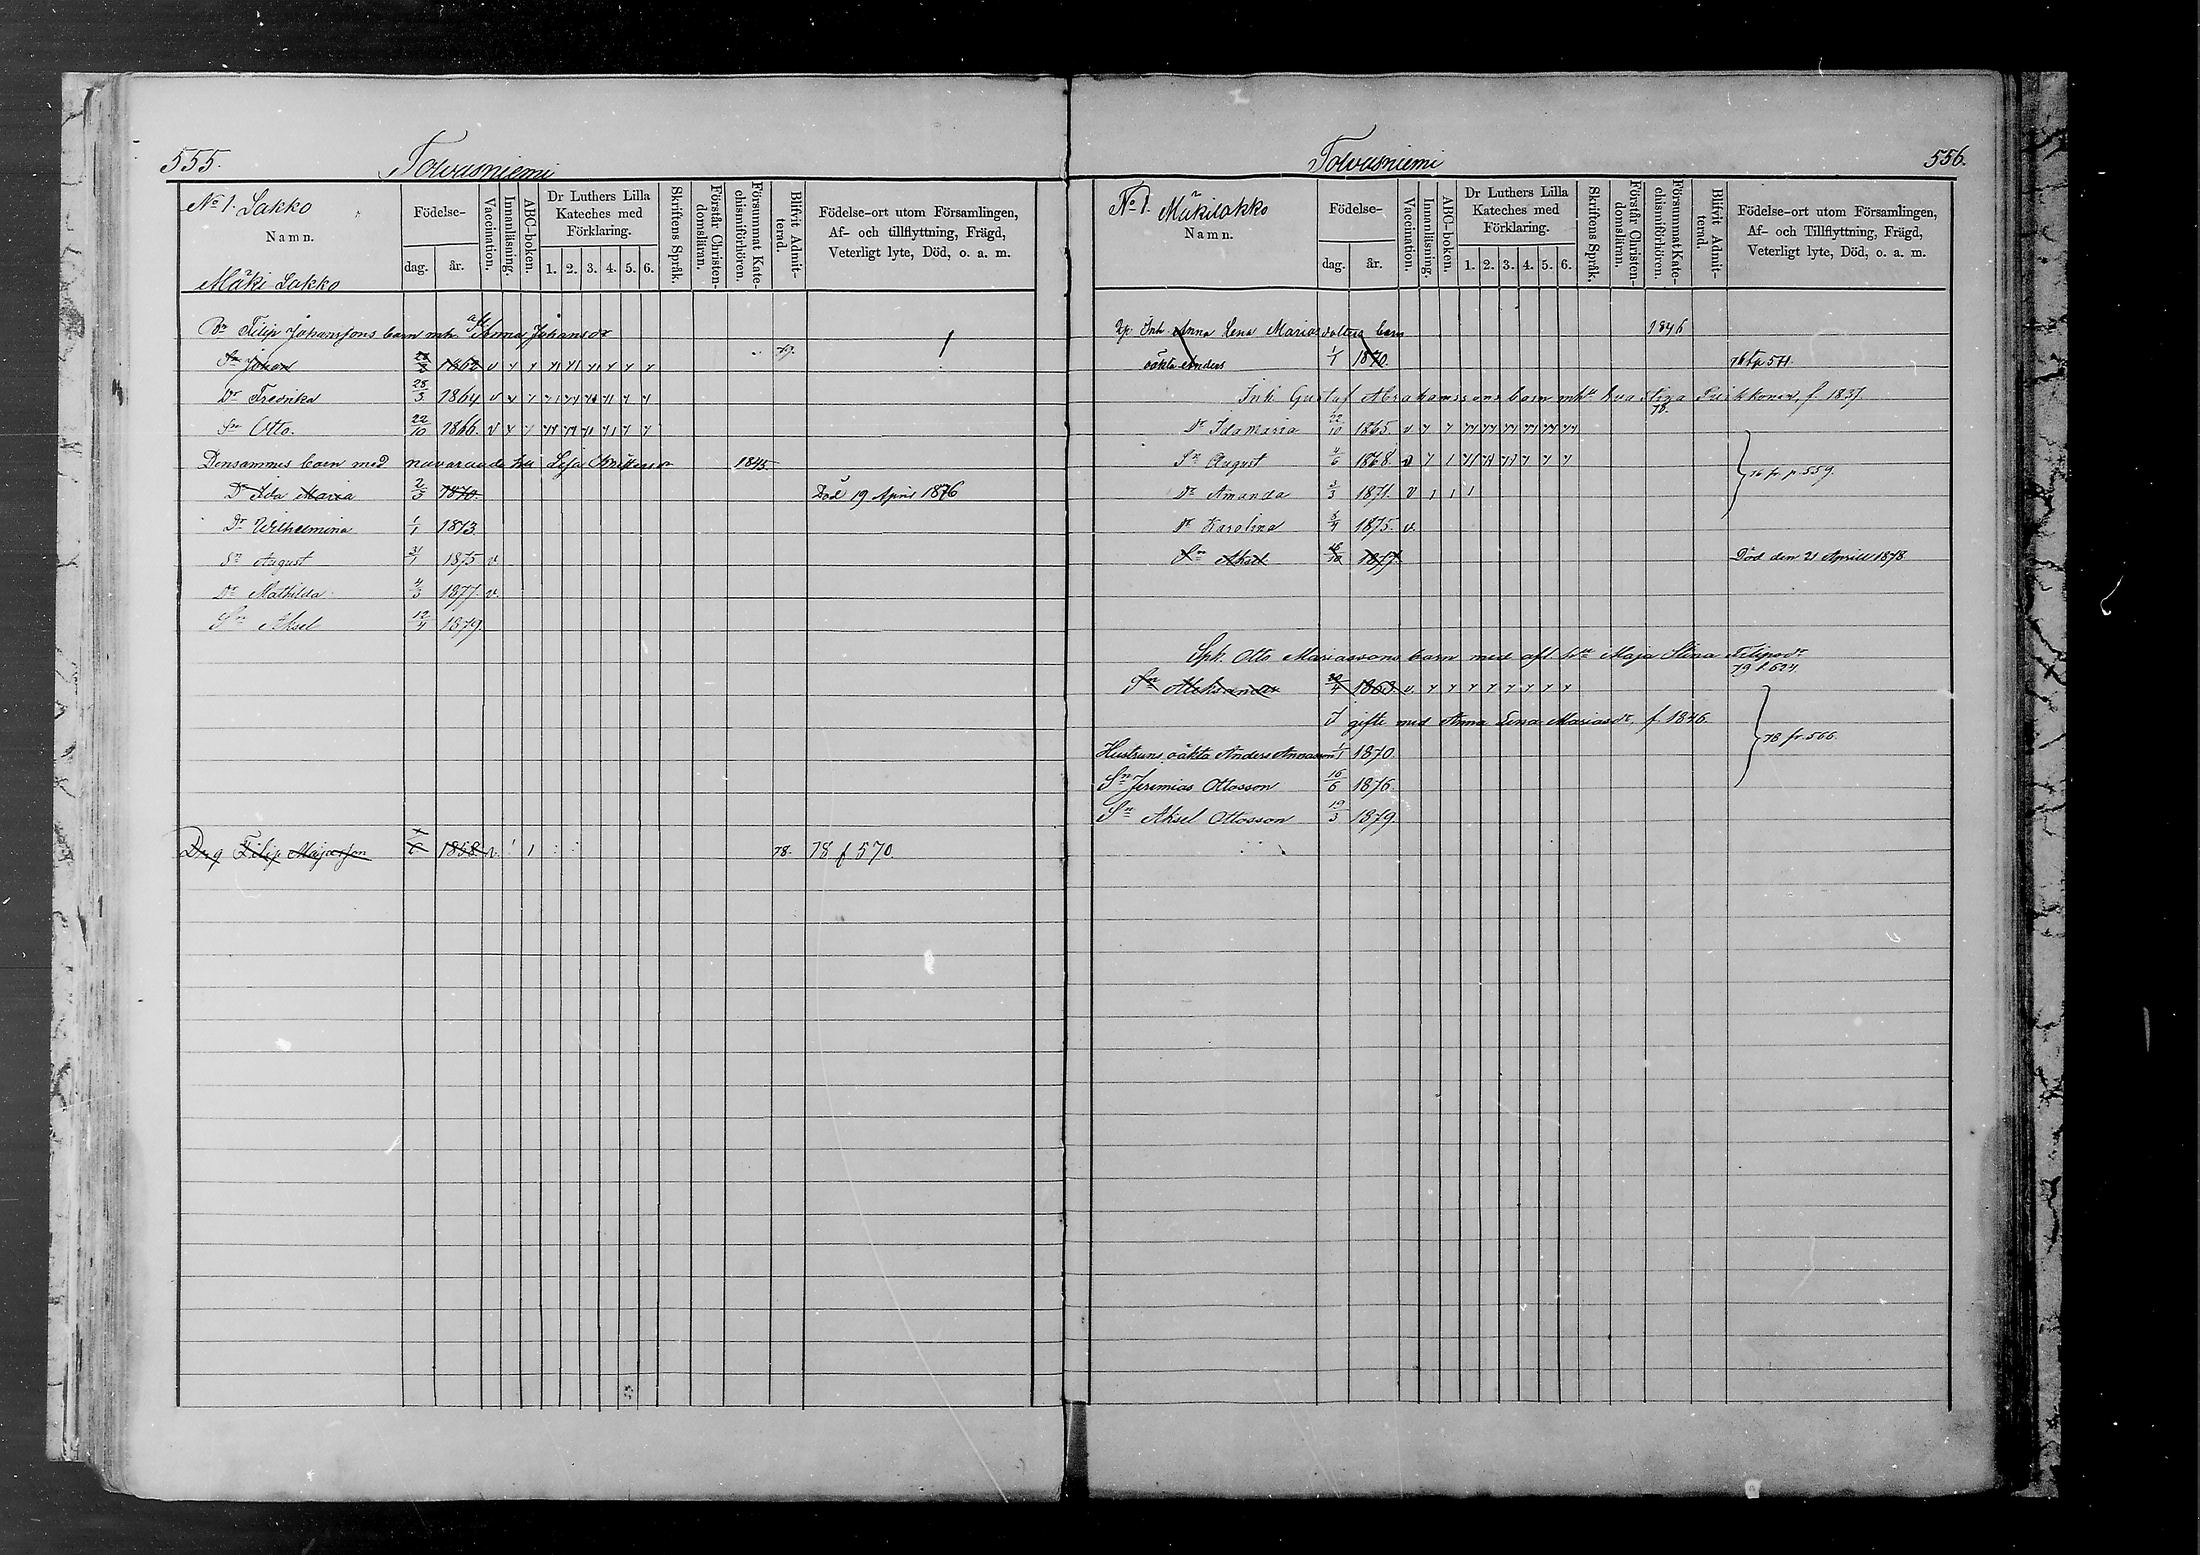 555.
Tolvasniemi
No 1. Lakko
Namn.
Mäki Lakko
Födelse-
dag.
år.
Vaccination.
Innanläsning.
ABC-boken.
Dr Luthers Lilla Kateches med Förklaring.
1. 2. 3. 4. 5. 6.
Skriftens Språk.
Förstår Christendomsläran.
Försummat Katechismiförhören.
Blifvit Admitterad.
Födelse-ort utom Församlingen,
Af- och tillflyttning, Frägd,
Veterligt lyte, Död, o. a. m.
Filip Johanssons barn m h afl Anna Johansdr
Sn Johan 1862 v 79.
Dr Fredrika 28/3 1864 v
Sn Otto. 22/10 1866. v
Densammes barn med nuvarande hu Lisa 1845
Dr Ida Maria 2/3 1870 Död 19 April 1876
Dr Wilhelmina 1/1 1873.
Sn August 31/1 1875 v.
Dr Mathilda 4/3 1877. v.
Sn Aksel 12/4 1879.
Drg Filip Majasson 1858 v. 1 78. 78 f 570.
Tolvasniemi
556.
No 1. Mäkilakko
Namn.
Födelse-
dag.
år.
Vaccination.
Innanläsning.
ABC-boken.
Dr Luthers Lilla Kateches med Förklaring.
1. 2. 3. 4. 5. 6.
Skriftens Språk.
Förstår Christendomslärnn.
Försummat Katechismiförhören.
Blifvit Admitterad.
Födelse-ort utom Församlingen,
Af- och Tillflyttning, Frägd,
Veterligt lyte, Död, o. a. m.
Inh. Anna Lena Mariasdotters barn 1846
oäkta Anders 1/1 1870. 76 t p 571.
Inh. Gustaf Abrahamssons barn m h hua Stina f. 1837.
78.
Dr Ida Maria 22/10 1865. v
Sn August 4/6 1868 v
Dr Amanda 3/3 1871. v 1 1 1
76 fr p. 559.
Dr Karolina 8/4 1875. v.
Sn Aksel 1877. Död den 21 Aprill 1878.
Sph. Otto Mariassons barn med afl h Maja Stina Filipsdr
79 t 624.
Sn Aleksander 30/4 1863 v.
I gifte med Anna Lena Mariasdr, f 1846.
78 fr. 566.
Hustruns oäkta Anders Annasson 1/1 1870.
Sn Jeremias Ottosson 16/6 1876.
Sn Aksel Ottosson 19/3 1879.